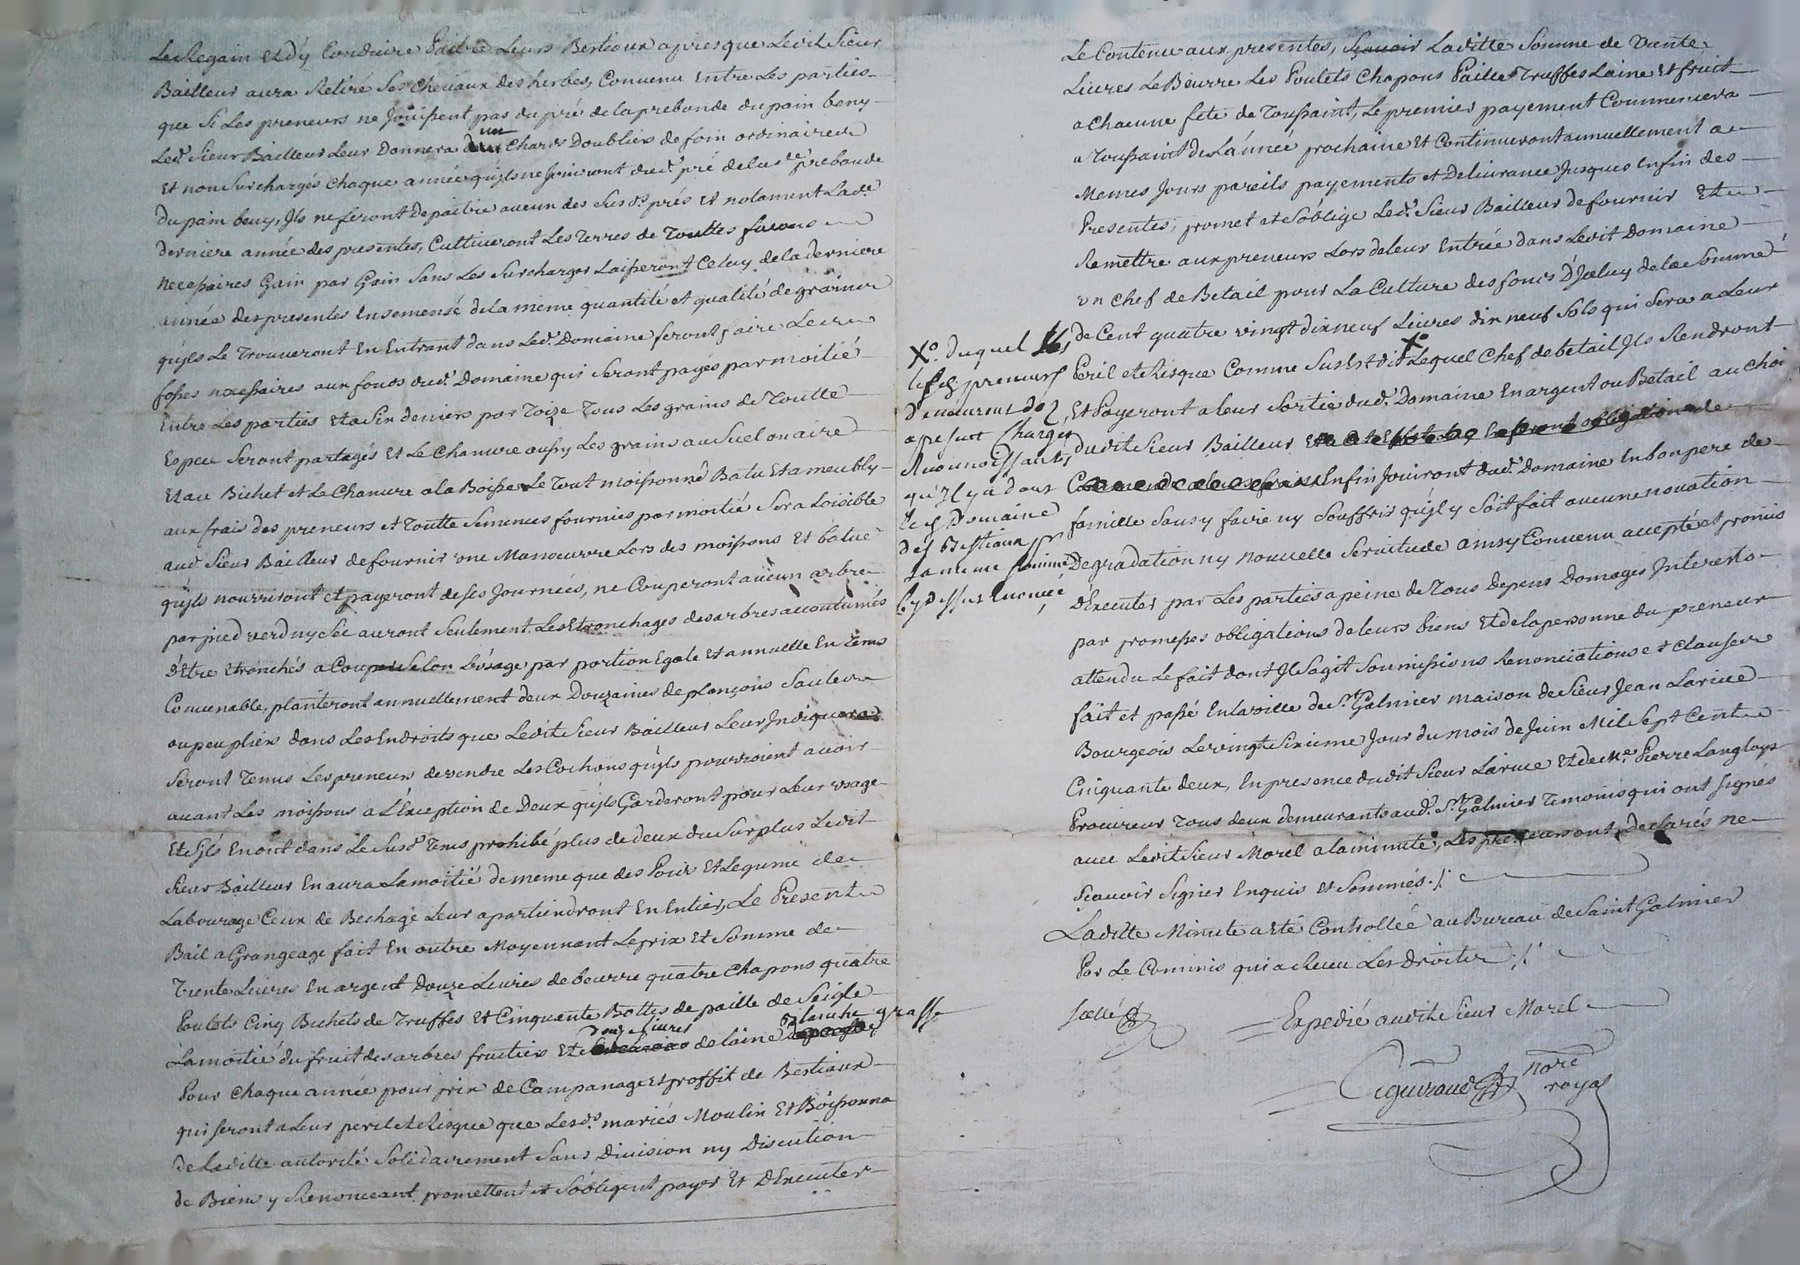 Le Regain et d'y Conduire Paitre Leurs Bestiaux apres que Ledit Sieur
Bailleur aura Retiré Ses Chevaux des herbes, Convenu Entre Les parties
que Si Les preneurs ne Jouissent pas du pré de la prebande du pain beny
Led.t Sieur Bailleur Leur Donnera un Chars Doubliex de foin ordinaire
Et non Surchargés Chaque année qu'ils ne Jouiront dud.t pré de lad.te prebande
du pain beny, Ils ne feront depaitre aucun des Susd.ts prés Et notament La
derniere année des presentes, Cultiveront Les Terres de Touttes facons
necessaires Gain par Gain Sans Les Surcharger Laisseront Celuy de la derniere
année des presentes Ensemensé de la meme quantité et qualité de grainer
qu'ils Le Trouveront En Entrant dans Led.t Domaine feront faire Les
fosses necessaires aux fonds dud.t Domaine qui Seront payés par moitié
Entre Les parties et a Six deniers par Toize Tous Les grains de Toutte
Espece Seront partagés Et Le Chanvre aussy Les grains au Suel ou aire
Et au Bichet et Le Chanvre a la Boisse Le Tout moissonné Batu Et ameubly
aux frais des preneurs et Toutte Semences fournies par moitié Sera Loisible
aud.t Sieur Bailleur de fournir une Manoeuvre Lors des moissons Et batue
qu'ils nourriront et payeront de Ses Journées, ne Couperont aucun arbre
par pied verd ny Sec auront Seulement Les Etronchages des arbres accoutumés
d'Etre Etronchés a Coupe Selon L'usage par portion Egale Et annuelle En Tems
Convenable, planteront annuellement deux Douzaines de plançons Saules
ou peupliex dans Les Endroits que Ledit Sieur Bailleur Leur Indiquera
Seront Tenus Les preneurs de vendre Les Cochons qu'ils pourroient avoir
avant Les moissons a L'Exception de Deux qu'ils Garderont pour Leur usage
Et S'ils En ont dans Le Susd.t Tems prohibé plus de deux du Surplus Ledit
Sieur Bailleur En aura La moitié de meme que des Poix Et Legume de
Labourage Ceux de Bechage Leur apartiendront En Entier, Le Present
Bail a Grangeage fait En outre Moyennant Le prix Et Somme de
Trente Livres En argent Douze Livres de beurre quatre Chapons quatre
Poulets Cinq Bichets de Truffes Et Cinquante Bottes de paille de Seigle
La moitié du fruit des arbres fruitiers Et douze Livres de Laine blanche grasse
Pour Chaque année pour prix de Campanage et proffit de Bestiaux
qui Seront a Leur peril et Risque que Lesd.ts mariés Moulin Et Boissonna
de Laditte autorité Solidairement Sans Division ny Discution
de Biens y Renonceant promettent et S'obligent payer Et D'Executer
Le Contenu aux presentes, Sçavoir Laditte Somme de Trente
Livres Le Beurre Les Poulets Chapons Paille Truffes Laine Et fruit
a Chacune fete de Toussaint, Le premier payement Commencera
a Toussaint de L'année prochaine Et Continueront annuellement a
Memes Jours pareils payements et Delivrance Jusques Enfin des
Presentes, promet et S'oblige Led.t Sieur Bailleur de fournir Et
Remettre aux preneurs Lors de Leur Entrée dans Ledit Domaine
un Chef de Betail pour La Culture des fonds D'Jceluy de la Somme
de Cent quatre vingt dix neuf Livres dix neuf Sols qui Sera a Leur
Peril et Risque Comme Sus Est dit X.o Lequel Chef de betail Ils Rendront
Et Payeront a Leur Sortie dud.t Domaine En argent ou Betail au Choi
dudit Sieur Bailleur
Enfin Jouiront dud.t Domaine En bon pere de
famille Sans y faire ny Souffrir qu'il y Soit fait aucune novation
Degradation ny nouvelle Servitude ainsy Convenu accepté et promis
d'Executer par Les parties a peine de Tous Depens Domages Interests
par promesses obligations de Leurs biens Et de la personne du preneur
attendu Le fait dont Il S'agit Soumissions Renonciations et Clauses
fait et passé En La ville de S.t Galmier maison de Sieur Jean Larive
Bourgeois Le vingt Sixieme Jour du mois de Juin Mil Sept Cent
Cinquante deux, En presence dudit Sieur Larive Et de M.e Pierre Langloys
Procureur Tous deux demeurants aud.t S.t Galmier Temoins qui ont Signés
avec Ledit Sieur Morel a la minute, Les preneurs ont declarés ne
Scavoir Signer Enquis Et Sommés ./.
Laditte Minute a Eté Controllée au Bureau de Saint Galmier
Par Le Commis qui a Receu Les Droits ./.
X.o duquel
lesd. preneurs
demeurent dez
a present Chargés
Reconnoissants
qu'Il y a dans
led Domaine
des Bestiaux
La meme Somme
Cy dessus Enoncée
Scellé
Expedié audit Sieur Morel
Peguiraud nore
royal